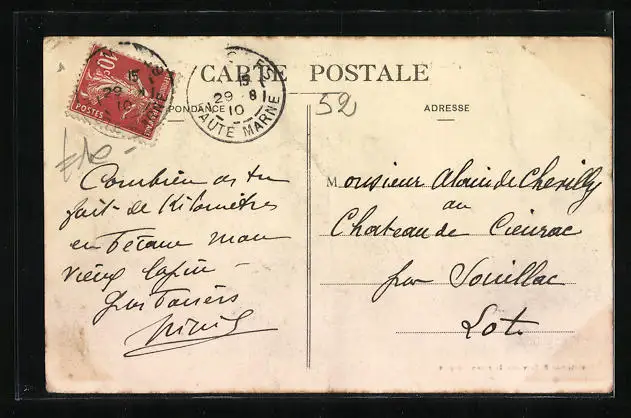 CARTE POSTALE
CORRESPONDANCE
ADRESSE
10c
POSTES
15
29 8
10
HAUTE MARNE
52
Combien as tu
fait de Kilomètres
en Bécane mon
vieux lapin
Monsieur Alain de Chevilly
au
Chateau de Cieurac
par Souillac
Lot